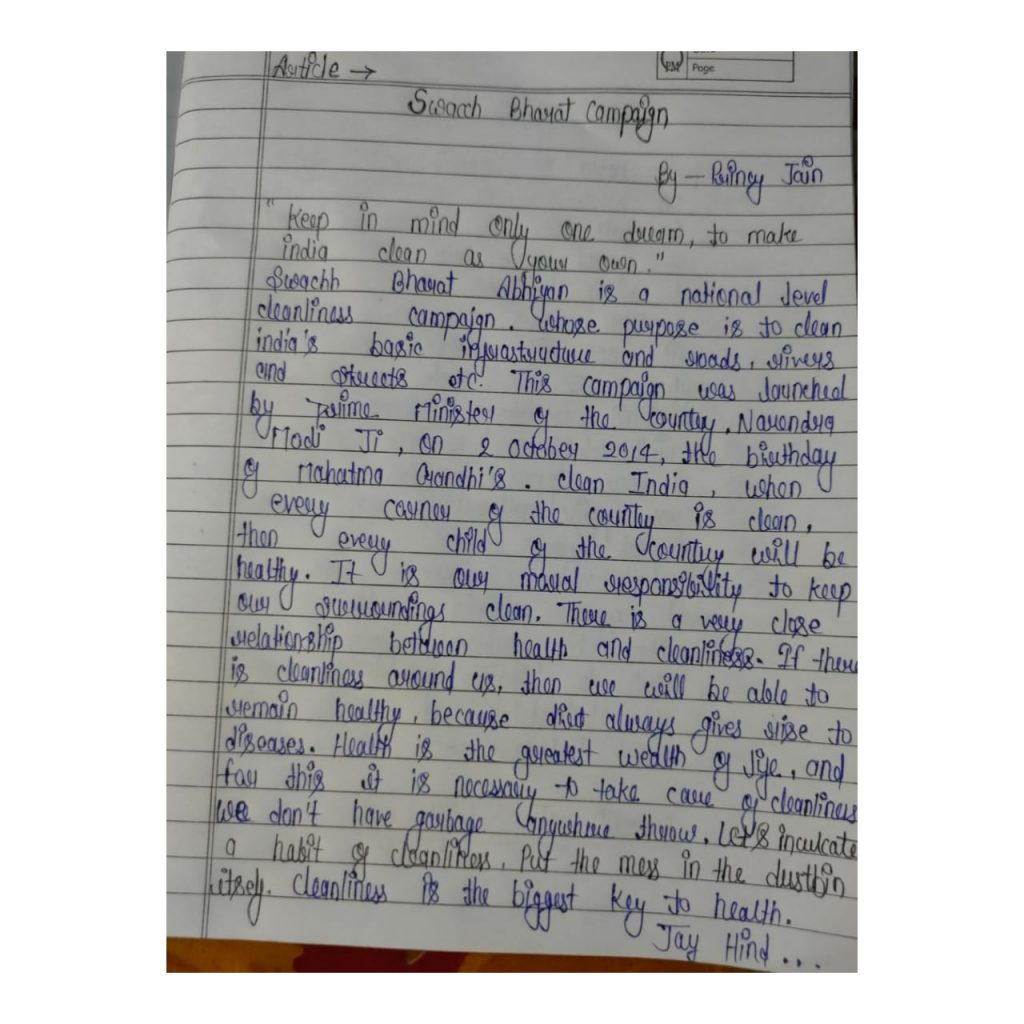 Article →
Page
Swacch Bharat Campaign
By – Jain
"Keep in mind only one dream, to make
india clean as your own."
Swachh Bharat Abhiyan is a national level
cleanliness campaign. whose purpose is to clean
india's basic infrastructure and roads, rivers
and streets etc. This campaign was launched
by Prime Minister of the country, Narendra
Modi Ji, on 2 October 2014, the birthday
of Mahatma Gandhi's. clean India, when
every corner of the country is clean,
then every child of the country will be
healthy. It is our moral responsibility to keep
our surroundings clean. There is a very close
relationship between health and cleanliness. If there
is cleanliness around us, then we will be able to
remain healthy, because dirt always gives rise to
diseases. Health is the greatest wealth of life, and
for this it is necessary to take care of cleanliness
we don't have garbage anywhere throw. Let's inculcate
a habit of cleanliness. Put the mess in the dustbin
itself. Cleanliness is the biggest key to health.
Jay Hind...